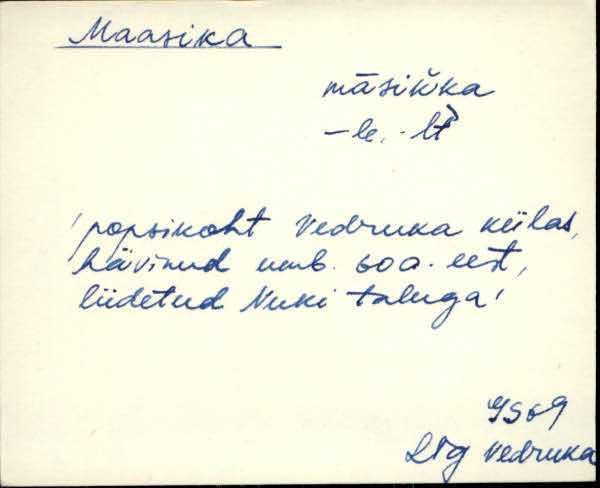 Maasika
māsik̆ka
-le, -lt
'popsikoht Vedruka külas,
hävinud umb. 60 a. eest,
liidetud Nuki taluga'
1969
Vedruka